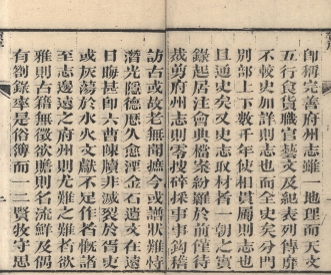 即稱完善府州志雖一地理而天文
五行食貨職官藝文及紀表列傳靡
不較史加詳則志也而全史矣分門
別部上下數千年使相貫屬則志也
且通史矣又史志取材者一朝之實
錄起居注會典檔案紛羅於前僅待
裁剪府州志則零搜碎採事事鈎稽
訪古或故老無聞摭今或譜狀難恃
潛光隱德歷久愈湮金石遺文在遠
日晦甚卽六曹陳牘非滅裂於胥吏
或灰蕩於水火文獻不足作者慨諸
至志邊遠之府州則尤難之難者欲
雅則古籍無徵欲贍則名流鮮及偶
有劄錄率是俗簿而一二賢牧守思